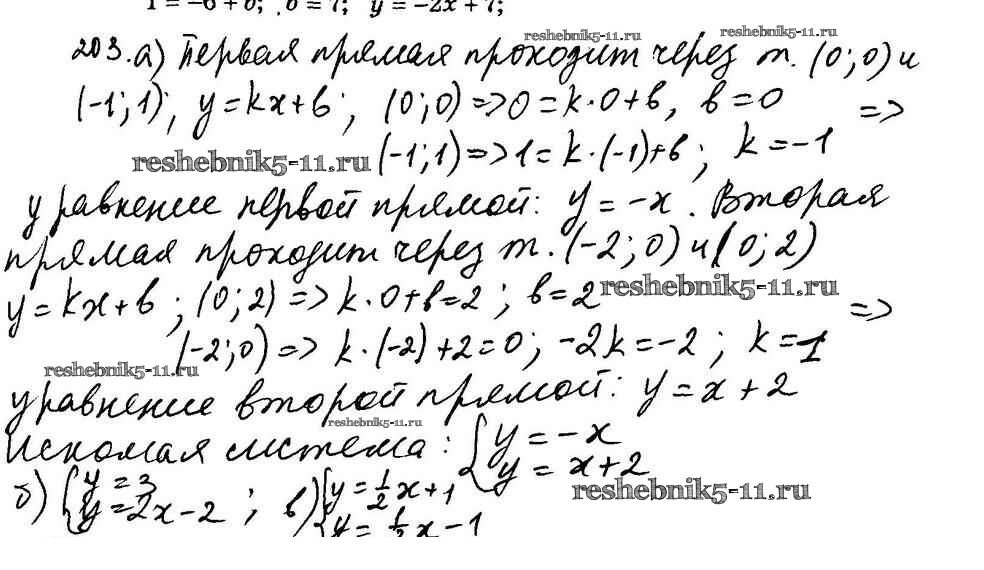 1 = -6 + b; b = 7; y = -2x + 7;
reshebnik5-11.ru reshebnik5-11.ru
203. а) Первая прямая проходит через т. (0; 0) и
(-1; 1); y = kx + b; (0; 0) => 0 = k · 0 + b, b = 0 =>
reshebnik5-11.ru (-1; 1) => 1 = k · (-1) + b; k = -1
уравнение первой прямой: y = -x. Вторая
прямая проходит через т. (-2; 0) и (0; 2)
y = kx + b; (0; 2) => k · 0 + b = 2; b = 2 reshebnik5-11.ru =>
(-2; 0) => k · (-2) + 2 = 0; -2k = -2; k = 1
reshebnik5-11.ru
уравнение второй прямой: y = x + 2
reshebnik5-11.ru
Искомая система: { y = -x
y = x + 2
reshebnik5-11.ru
б) { y = 3 ; в) { y = 1/2 x + 1
y = 2x - 2 y = 1/2 x - 1